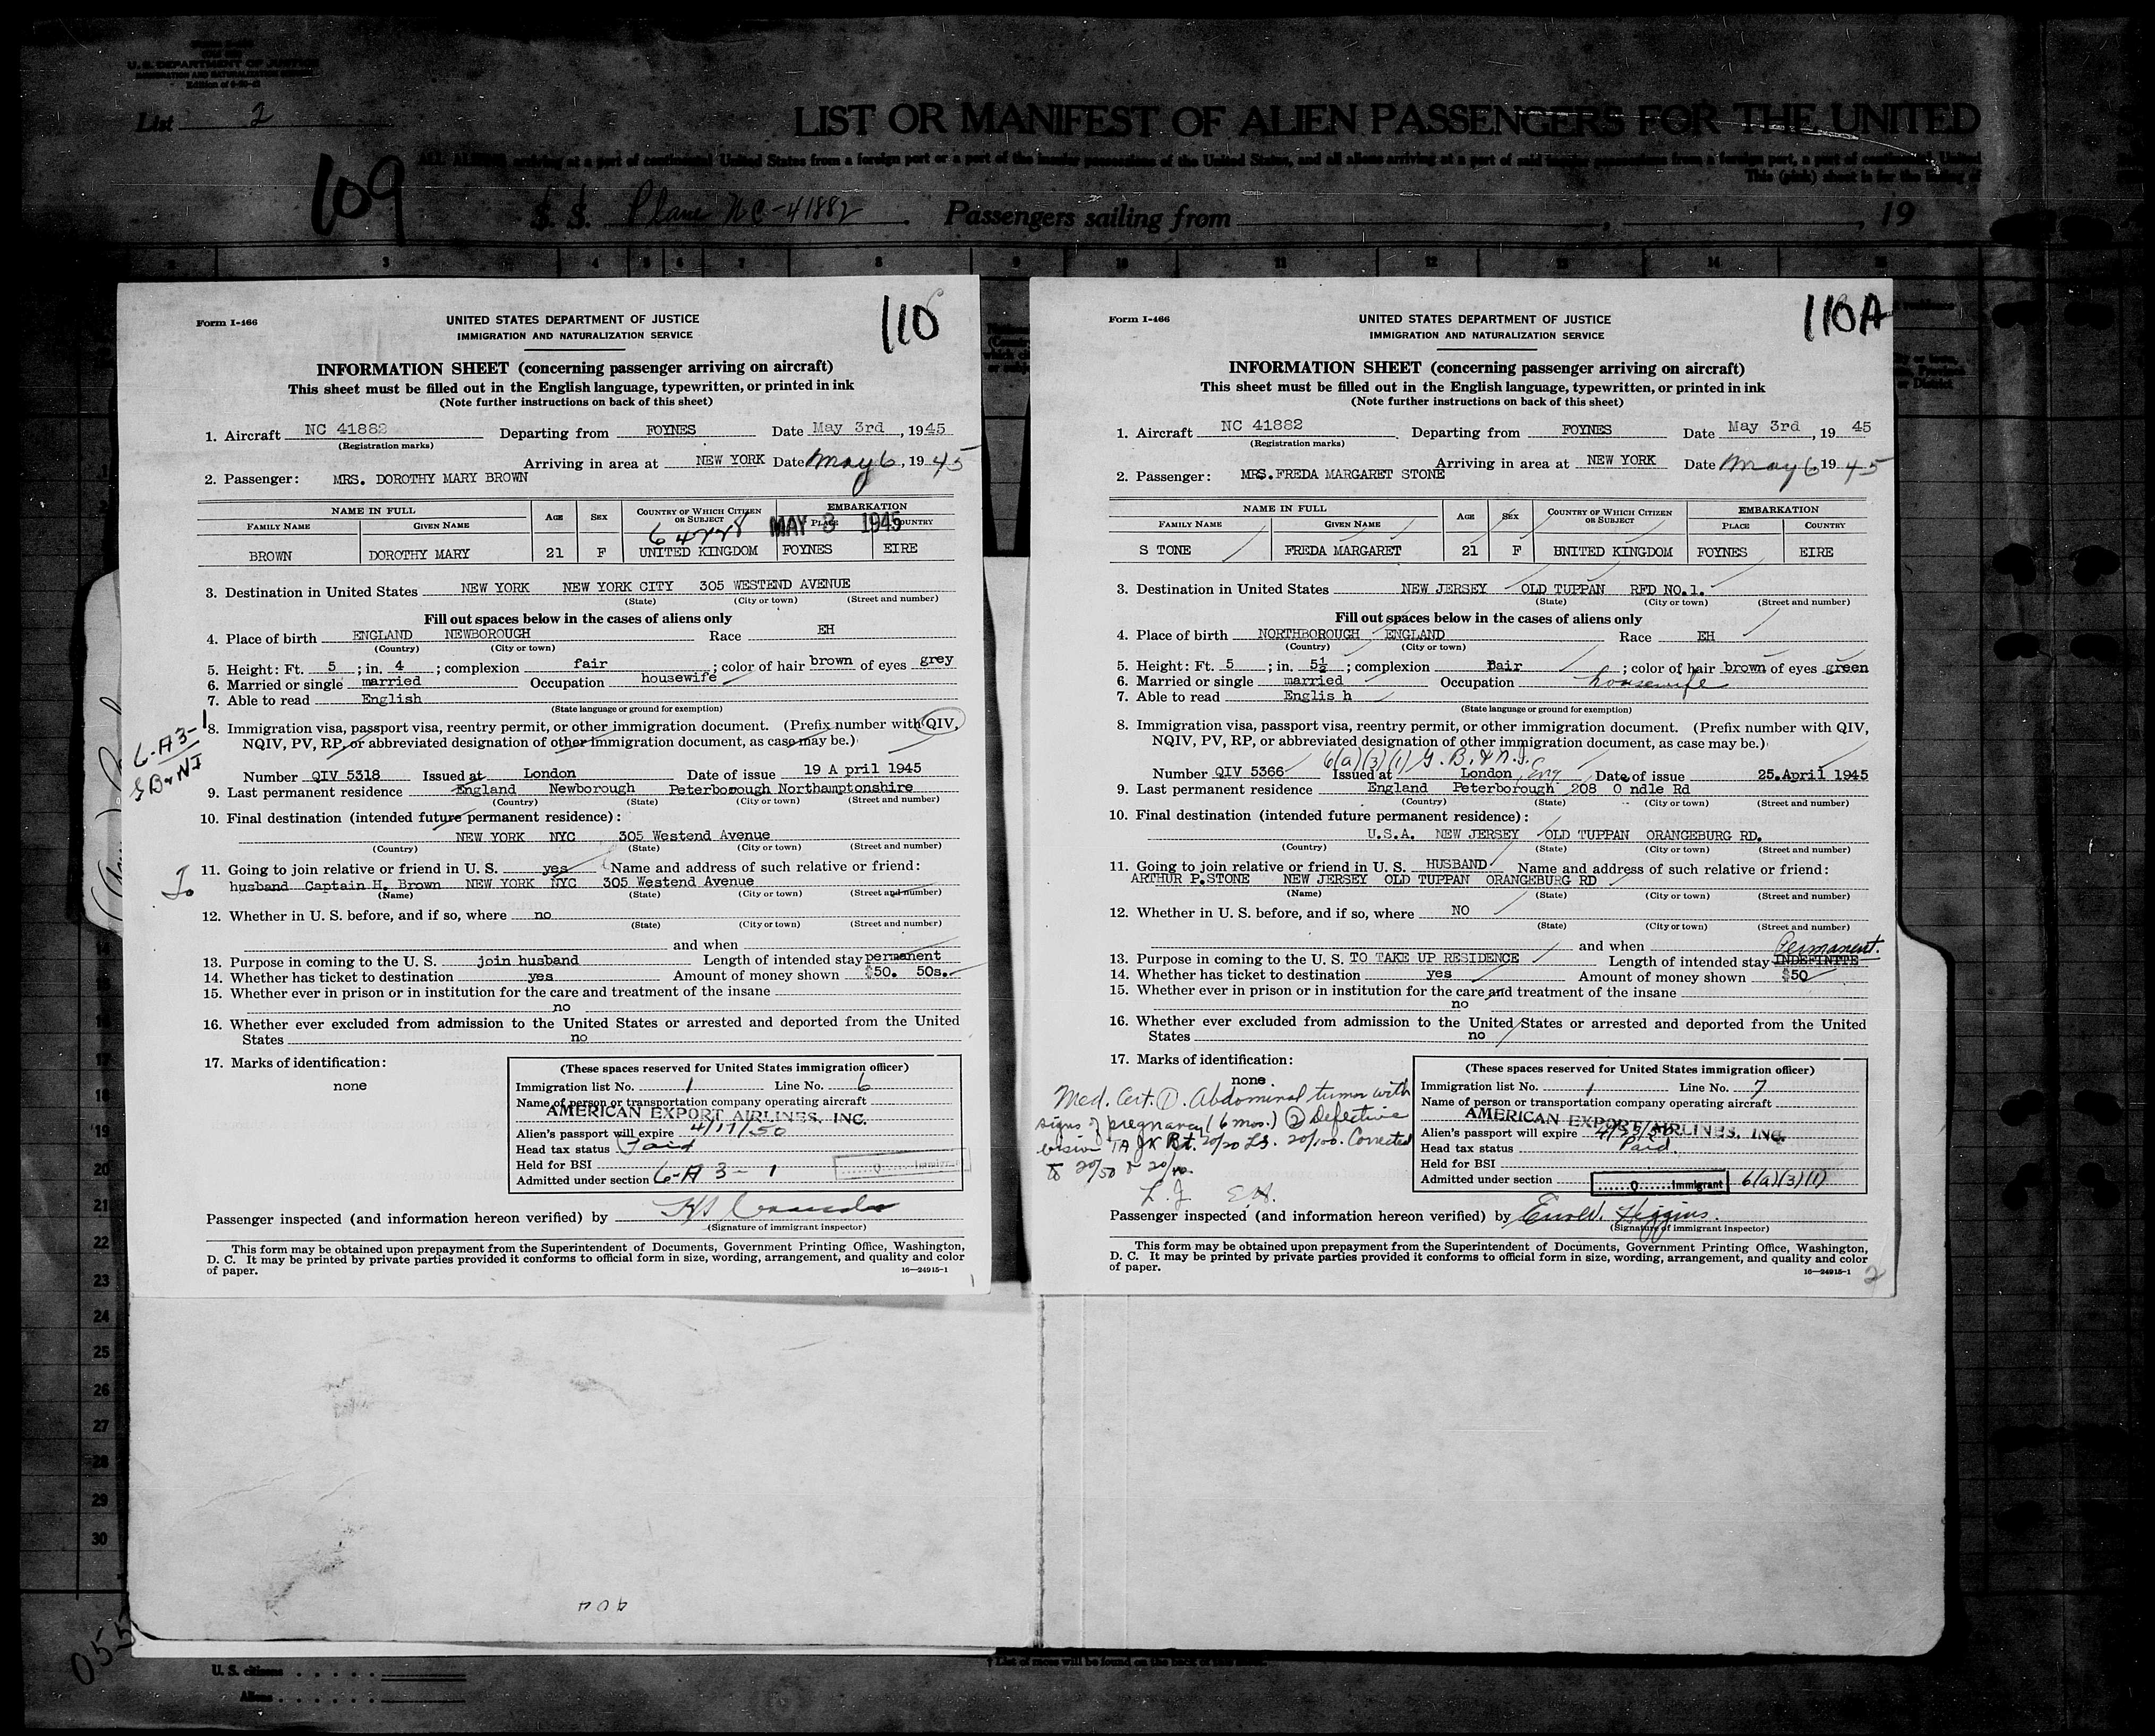 U. S. DEPARTMENT OF JUSTICE
IMMIGRATION AND NATURALIZATION SERVICE
List 2
LIST OR MANIFEST OF ALIEN PASSENGERS FOR THE UNITED
ALL ALIENS arriving at a port of continental United States from a foreign port or a port of the insular possessions of the United States, and all aliens arriving at a port of said insular possessions from a foreign port, a port of continental United
This (pink) sheet is for the listing of
109
S. S. Plane NC-41882 Passengers sailing from , 19
2 3 4 5 6 7 8 9 10 11 12 13 14 15
110
Form I-466
UNITED STATES DEPARTMENT OF JUSTICE
IMMIGRATION AND NATURALIZATION SERVICE
INFORMATION SHEET (concerning passenger arriving on aircraft)
This sheet must be filled out in the English language, typewritten, or printed in ink
(Note further instructions on back of this sheet)
1. Aircraft NC 41882 Departing from FOYNES Date May 3rd , 1945
(Registration marks)
Arriving in area at NEW YORK Date May 6, 1945
2. Passenger: MRS. DOROTHY MARY BROWN
NAME IN FULL AGE SEX COUNTRY OF WHICH CITIZEN OR SUBJECT EMBARKATION
FAMILY NAME GIVEN NAME PLACE COUNTRY
MAY 3 1945
BROWN DOROTHY MARY 21 F UNITED KINGDOM FOYNES EIRE
3. Destination in United States NEW YORK NEW YORK CITY 305 WESTEND AVENUE
(State) (City or town) (Street and number)
Fill out spaces below in the cases of aliens only
4. Place of birth ENGLAND NEWBOROUGH Race EH
(Country) (City or town)
5. Height: Ft. 5 ; in. 4 ; complexion fair ; color of hair brown of eyes grey
6. Married or single married Occupation housewife
7. Able to read English
(State language or ground for exemption)
8. Immigration visa, passport visa, reentry permit, or other immigration document. (Prefix number with QIV,
NQIV, PV, RP, or abbreviated designation of other immigration document, as case may be.)
6-A3-1
GB & NI
Number QIV 5318 Issued at London Date of issue 19 A pril 1945
9. Last permanent residence England Newborough Peterborough Northamptonshire
(Country) (State) (City or town) (Street and number)
10. Final destination (intended future permanent residence):
NEW YORK NYC 305 Westend Avenue
(Country) (State) (City or town) (Street and number)
11. Going to join relative or friend in U. S. yes Name and address of such relative or friend:
To
husband Captain H. Brown NEW YORK NYC 305 Westend Avenue
(Name) (State) (City or town) (Street and number)
12. Whether in U. S. before, and if so, where no
(State) (City or town) (Street and number)
and when
13. Purpose in coming to the U. S. join husband Length of intended stay permanent
14. Whether has ticket to destination yes Amount of money shown $50. 50s.
15. Whether ever in prison or in institution for the care and treatment of the insane
no
16. Whether ever excluded from admission to the United States or arrested and deported from the United
States no
17. Marks of identification:
none
(These spaces reserved for United States immigration officer)
Immigration list No. 1 Line No. 6
Name of person or transportation company operating aircraft
AMERICAN EXPORT AIRLINES, INC.
Alien's passport will expire 4/17/50
Head tax status Paid
Held for BSI
Admitted under section 6-A 3-1 Q Immigrant
Passenger inspected (and information hereon verified) by
(Signature of immigrant inspector)
This form may be obtained upon prepayment from the Superintendent of Documents, Government Printing Office, Washington,
D. C. It may be printed by private parties provided it conforms to official form in size, wording, arrangement, and quality and color
of paper.
16—24915-1
1
110A
Form I-466
UNITED STATES DEPARTMENT OF JUSTICE
IMMIGRATION AND NATURALIZATION SERVICE
INFORMATION SHEET (concerning passenger arriving on aircraft)
This sheet must be filled out in the English language, typewritten, or printed in ink
(Note further instructions on back of this sheet)
1. Aircraft NC 41882 Departing from FOYNES Date May 3rd , 19 45
(Registration marks)
Arriving in area at NEW YORK Date May 6, 1945
2. Passenger: MRS. FREDA MARGARET STONE
NAME IN FULL AGE SEX COUNTRY OF WHICH CITIZEN OR SUBJECT EMBARKATION
FAMILY NAME GIVEN NAME PLACE COUNTRY
S TONE FREDA MARGARET 21 F UNITED KINGDOM FOYNES EIRE
3. Destination in United States NEW JERSEY OLD TUPPAN RFD NO.1.
(State) (City or town) (Street and number)
Fill out spaces below in the cases of aliens only
4. Place of birth NORTHBOROUGH ENGLAND Race EH
(Country) (City or town)
5. Height: Ft. 5 ; in. 5½ ; complexion Fair ; color of hair brown of eyes green
6. Married or single married Occupation housewife
7. Able to read Englis h
(State language or ground for exemption)
8. Immigration visa, passport visa, reentry permit, or other immigration document. (Prefix number with QIV,
NQIV, PV, RP, or abbreviated designation of other immigration document, as case may be.)
6(a)(3)(1) G. B. & N.I.
Number QIV 5366 Issued at London, Eng Date of issue 25.April 1945
9. Last permanent residence England Peterborough 208 O ndle Rd
(Country) (State) (City or town) (Street and number)
10. Final destination (intended future permanent residence):
U.S.A. NEW JERSEY OLD TUPPAN ORANGEBURG RD.
(Country) (State) (City or town) (Street and number)
11. Going to join relative or friend in U. S. HUSBAND Name and address of such relative or friend:
ARTHUR P.STONE NEW JERSEY OLD TUPPAN ORANGEBURG RD
(Name) (State) (City or town) (Street and number)
12. Whether in U. S. before, and if so, where NO
(State) (City or town) (Street and number)
and when Permanent.
13. Purpose in coming to the U. S. TO TAKE UP RESIDENCE Length of intended stay INDEFINITE
14. Whether has ticket to destination yes Amount of money shown $50
15. Whether ever in prison or in institution for the care and treatment of the insane
no
16. Whether ever excluded from admission to the United States or arrested and deported from the United
States no
17. Marks of identification:
none.
Med. Cert. ①. Abdominal tumor with
signs of pregnancy (6 mos.) ② Defective
vision Rt. 20/70 LS. 20/100. Corrected
to 20/50 &
L.J. E.H.
(These spaces reserved for United States immigration officer)
Immigration list No. 1 Line No. 7
Name of person or transportation company operating aircraft
AMERICAN EXPORT AIRLINES, INC.
Alien's passport will expire
Head tax status Paid.
Held for BSI
Admitted under section Q Immigrant 6(a)(3)(1)
Passenger inspected (and information hereon verified) by Higgins.
(Signature of immigrant inspector)
This form may be obtained upon prepayment from the Superintendent of Documents, Government Printing Office, Washington,
D. C. It may be printed by private parties provided it conforms to official form in size, wording, arrangement, and quality and color
of paper.
16—24915-1
2
14
17
18
19
20
21
22
23
24
25
26
27
28
29
30
404
055
U. S. citizens
Aliens
† List of races will be found on the back of this sheet.